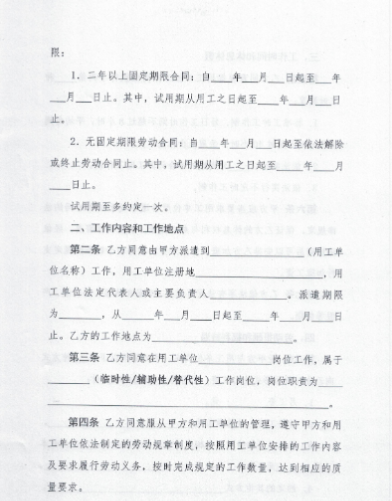 限：
1．二年以上固定期限合同：自___年___月___日起至___年
___月___日止。其中，试用期从用工之日起至___年___月___日
止。
2．无固定期限劳动合同：自___年___月___日起至依法解除
或终止劳动合同止。其中，试用期从用工之日起至____年___月
___日止。
试用期至多约定一次。
二、工作内容和工作地点
第二条 乙方同意由甲方派遣到______________（用工单
位名称）工作，用工单位注册地__________________，用
工单位法定代表人或主要负责人____________。派遣期限
为______，从_____年____月____日起至_____年____月____日
止。乙方的工作地点为__________________。
第三条 乙方同意在用工单位__________岗位工作，属于
______（临时性/辅助性/替代性）工作岗位，岗位职责为____
________________________________________。
第四条 乙方同意服从甲方和用工单位的管理，遵守甲方和用
工单位依法制定的劳动规章制度，按照用工单位安排的工作内容
及要求履行劳动义务，按时完成规定的工作数量，达到相应的质
量要求。